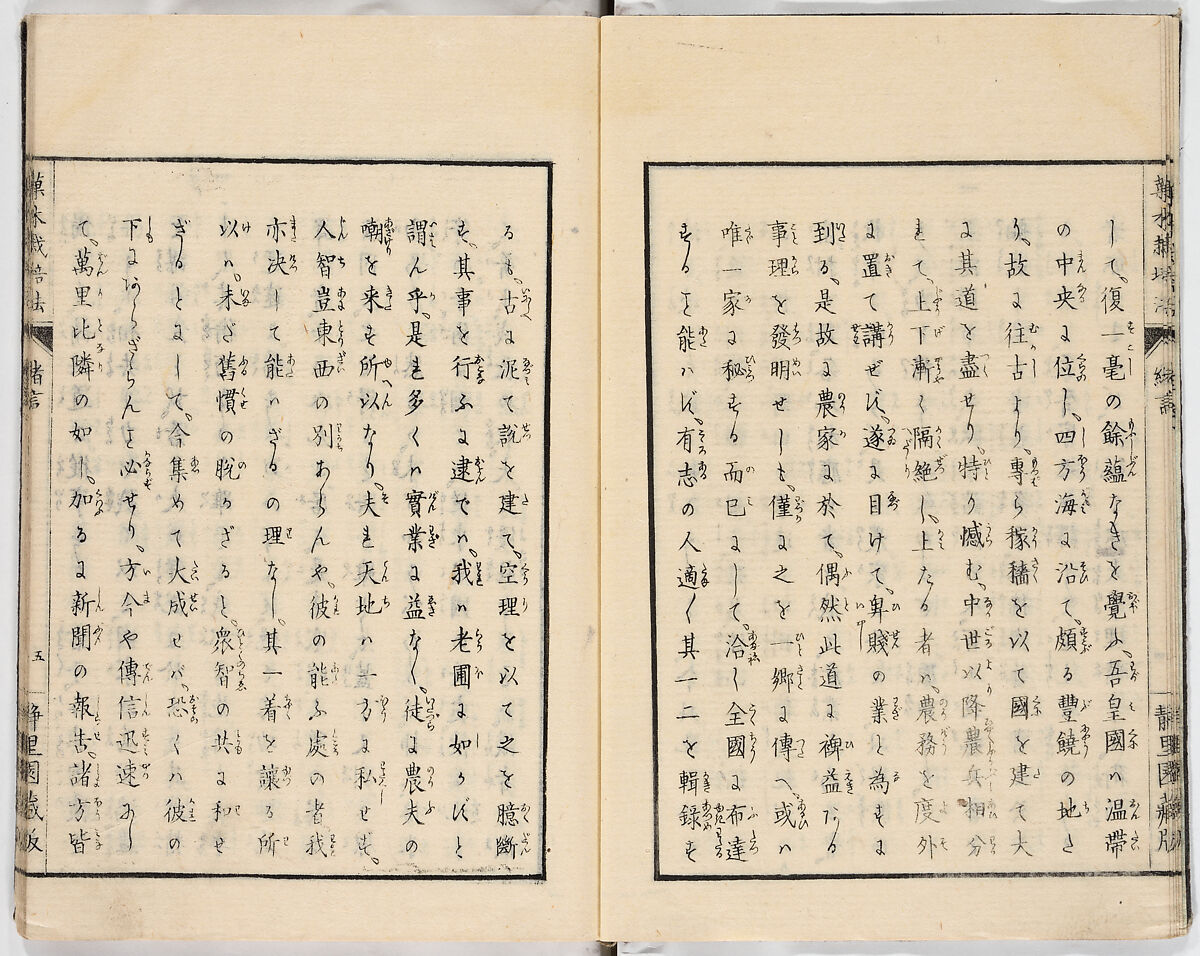 して、復一毫の餘蘊なきを覺ふ、吾皇國ハ温帶
の中央に位し、四方海に沿て、頗る豐饒の地た
り、故に往古より、專ら稼穡を以て國を建て大
に其道を盡せり、特り憾む、中世以降農兵相分
れて、上下漸く隔絶し、上たる者ハ、農務を度外
に置て講ぜず、遂に目けて、卑賤の業と為すに
到る、是故に農家に於て、偶然此道に裨益ある
事理を發明せしも、僅に之を一郷に傳へ、或ハ
唯一家に秘する而已にして、洽く全國に布達
する を能ハず、有志の人適〱其一二を輯録す
るも、古に泥て説を建て、空理を以て之を臆斷
す、其事を行ふに逮でハ、我ハ老圃に如かずと
謂ん乎、是れ多くハ實業に益なく、徒に農夫の
嘲を来す所以なり、夫れ天地ハ一方に私せず、
人智豈東西の別あらんや、彼の能ふ處の者我
亦决して能ハざるの理なし、其一着を讓る所
以ハ、未ざ舊慣の脱かざると、衆智の共に和せ
ざるとにして、今集めて大成せバ、恐くハ彼の
下にあらざらん を必せり、方今や傳信迅速にし
て、萬里比隣の如し、加るに新聞の報告、諸方皆
緒言
五
静里園藏版